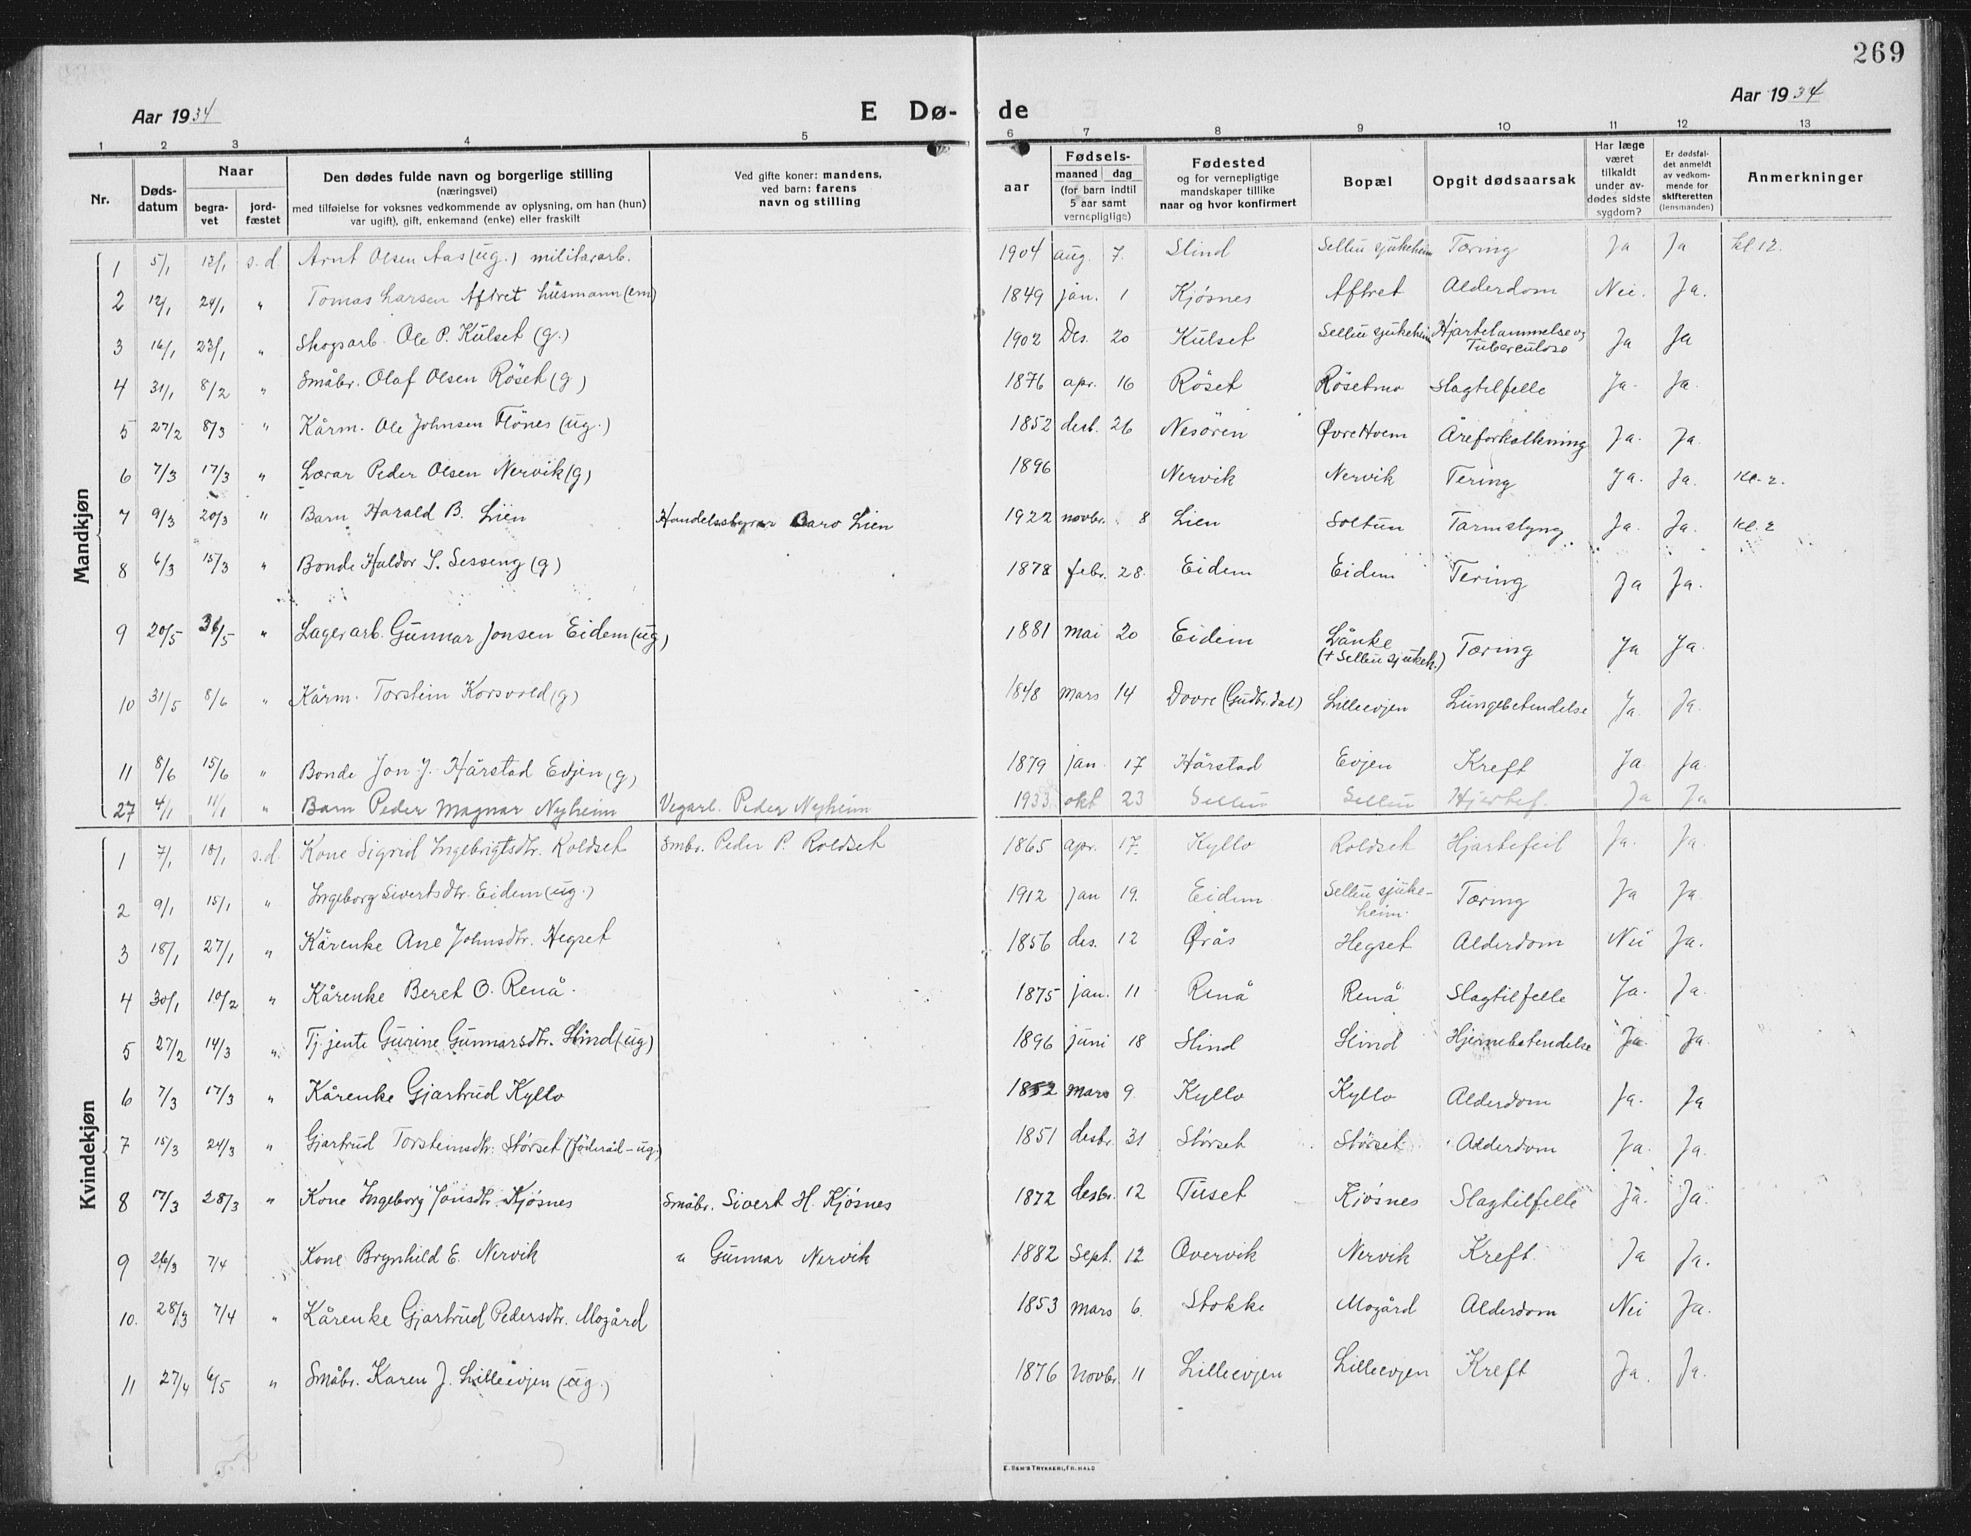 269
Aar 1934
E Dø-
de
Aar 1934
1 2 3 4 5 6 7 8 9 10 11 12 13
Nr.
Døds-
datum
Naar
begra-
vet
jord-
fæstet
Den dødes fulde navn og borgerlige stilling
(næringsvei)
med tilføielse for voksnes vedkommende av oplysning, om han (hun)
var ugift), gift, enkemand (enke) eller fraskilt
Ved gifte koner: mandens,
ved barn: farens
navn og stilling
aar
Fødsels-
maaned dag
(for barn indtil
5 aar samt
vernepligtige)
Fødested
og for vernepligtige
mandskaper tillike
naar og hvor konfirmert
Bopæl
Opgit dødsaarsak
Har læge
været
tilkaldt
under av-
dødes sidste
sygdom?
Er dødsfal-
det anmeldt
av vedkom-
mende for
skifteretten
(lensmanden)
Anmerkninger
Mandkjøn
1 5/1 12/1 s.d Arnt Olsen Aas (ug.) militærarb. 1904 aug. 7. Slind Selbu sjukeheim Tæring Ja Ja kl 12.
2 12/1 24/1 " Tomas Larsen Aftret husmann (em) 1849 jan. 1 Kjøsnes Aftret Alderdom Nei. Ja.
3 16/1 23/1 " Skogsarb. Ole P. Kulset (g.) 1902 Des. 20 Kulset Selbu sjukeheim Hjartelammelse og Tuberculose Ja Ja
4 31/1 8/2 " Småbr. Olaf Olsen Røset (g) 1876 apr. 16 Røset Røsetmo Slagtilfelle Ja. Ja.
5 27/2 8/3 " Kårm. Ole Johnsen Flönes (ug.) 1852 desb. 26 Nesören Øvre Hoem Åreforkalkning Ja. Ja.
6 7/3 17/3 " Lærar Peder Olsen Nervik (g) 1896 Nervik Nervik Tering Ja. Ja. Kl. 2.
7 9/3 20/3 " Barn Harald B. Lien Handelsstyrer Baro Lien 1922 novbr. 8 Lien Soltun Tarmslyng. Ja. Ja. Kl. 2
8 6/3 15/3 " Bonde Haldor S. Sesseng (g) 1878 febr. 28. Eidem Eidem Tering Ja Ja.
9 20/5 31/5 " Lagerarb. Gunnar Jonsen Eidem (ug) 1881 mai 20 Eidem Lånke (+ Selbu sjukeh.) Tæring Ja Ja.
10 31/5 8/6 " Kårm. Torstein Korsvold (g) 1848 mars 14 Dovre (Gudbr.dal) Lilleevjen Lungebetendelse Ja. Ja.
11 8/6 15/6 " Bonde Jon J. Hårstad Evjen (g) 1879 jan. 17 Hårstad Evjen Kreft Ja Ja.
27 4/1 11/1 " Barn Peder Magnar Nyheim Vegarb. Peder Nyheim 1933 okt 23 Selbu Selbu Hjertef. Ja Ja
Kvindekjøn
1 7/1 18/1 s.d. Kone Sigrid Ingebrigtsdtr. Roldset Smbr. Peder P. Roldset 1865 apr. 17. Kyllo Roldset Hjartefeil Ja. Ja.
2 9/1 15/1 " Ingeborg Sivertsdtr. Eidem (ug.) 1912 jan 19. Eidem Selbu sjuke-heim. Tæring Ja Ja.
3 18/1 27/1 " Kårenke Ane Johnsdtr. Hegset 1856 des. 12 Ørås Hegset Alderdom Nei Ja.
4 30/1 10/2 " Kårenke Beret O. Renå. 1875 jan. 11 Renå Renå Slagtilfelle Ja. Ja.
5 27/2 14/3 " Tj.jente Gurine Gunnarsdtr. Slind (ug) 1896 juni 18 Slind Slind Hjernebetendelse Ja. Ja.
6 7/3 17/3 " Kårenke Gjartrud Kyllo 1852 mars 9. Kyllo Kyllo Alderdom Ja. Ja
7 15/3 24/3 " Gjartrud Torsteinsdtr. Størset (föderåd - ug) 1851 desbr. 31 Størset Størset Alderdom Ja. Ja.
8 17/3 28/3 " Kone Ingeborg Jonsdtr. Kjøsnes Småbr. Sivert H. Kjøsnes 1872 desbr. 12 Tuset Kjøsnes Slagtilfelle Ja. Ja.
9 26/3 7/4 Kone Brynhild E. Nervik " Gunnar Nervik 1882 Sept. 12 Overvik Nervik Kreft Ja Ja.
10. 28/3 7/4 " Kårenke Gjartrud Pedersdtr. Mogård 1853 mars 6. Stokke Mogård Alderdom Nei Ja.
11 27/4 6/5 " Småbr. Karen J. Lilleevjen (ug.) 1876 Novbr. 11 Lilleevjen Lilleevjen Kreft Ja. Ja.
E. SEM'S TRYKKERI, FR.HALD